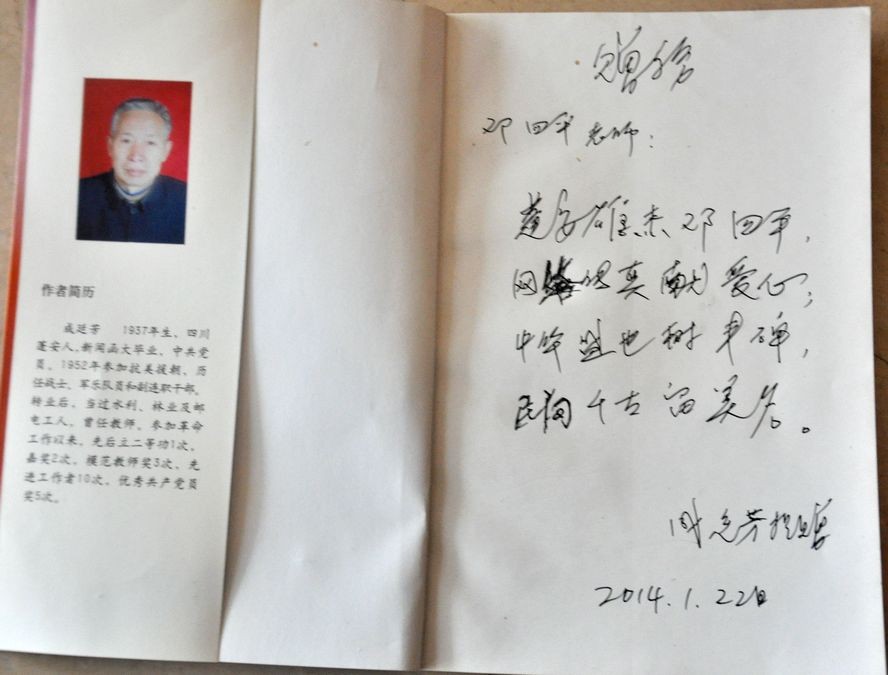 作者简历
成廷芳 1937年生，四川
蓬安人，新闻函大毕业，中共党
员，1952年参加抗美援朝，历
任战士、军乐队员和副连职干部。
转业后，当过水利、林业及邮
电工人，曾任教师，参加革命
工作以来，先后立二等功1次，
嘉奖2次，模范教师奖3次，先
进工作者10次，优秀共产党员
奖5次。
赠给
邓四平老师：
雄杰邓四平，
网 真献爱心；
中华 也树丰碑，
民间千古留美名。
芳 赠
2014.1.22日